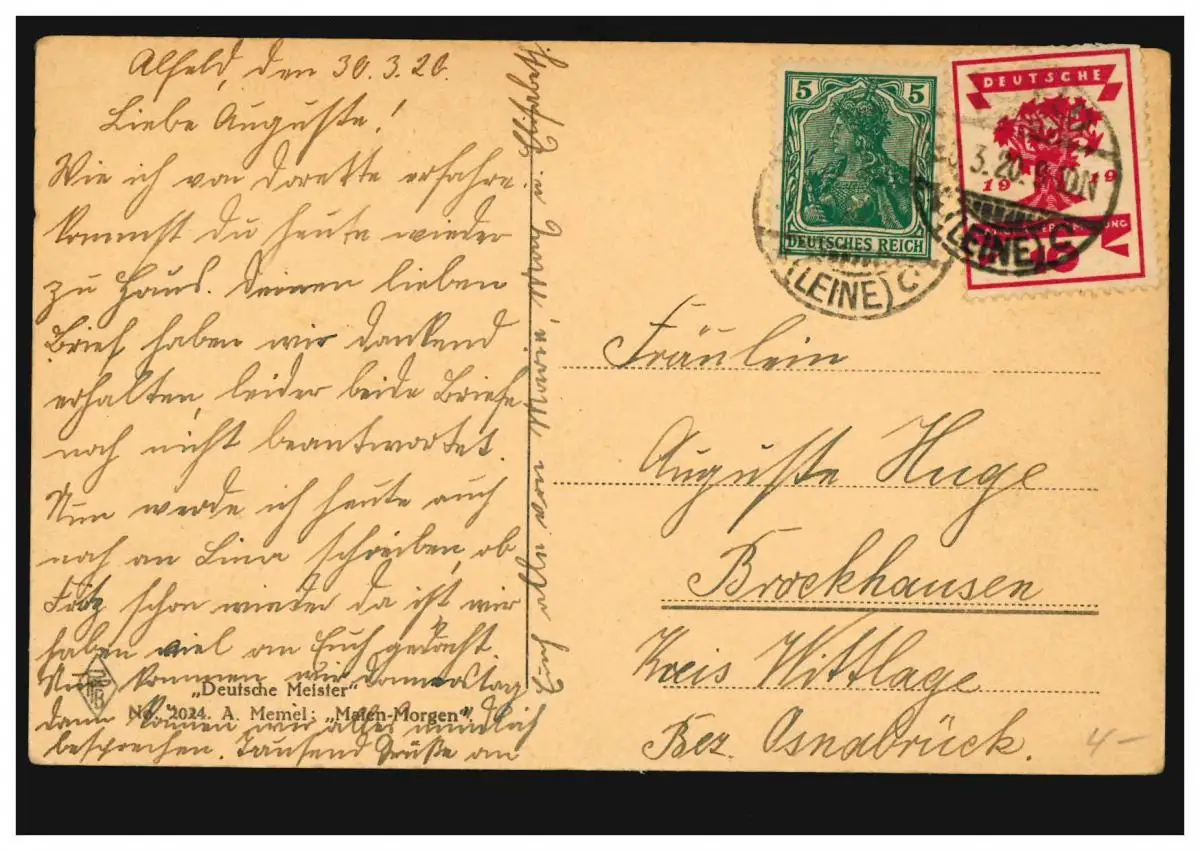 Alfeld, den 30.3.20.
Liebe Auguste!
Wie ich von Dorette erfahre.
kommst du heute wieder
zu Haus. Deinen lieben
Brief haben wir dankend
erhalten, leider beide Briefe
noch nicht beantwortet.
Nun werde ich heute auch
noch an Lina schreiben, ob
Fritz schon wieder da ist, wir
haben viel an Euch gedacht.
Nun kommen wir Donnerstag
dann können wir alles mündlich
besprechen. Tausend Grüße an
Euch allen von Maria, Mutter u.
"Deutsche Meister"
No. 2024. A. Memel: „Maien-Morgen".
5 5
DEUTSCHES REICH
DEUTSCHE
19 19
3.20. 9-10N
(LEINE) C
(LEINE) C
Fräulein
Auguste Huge
Brockhausen
Kreis Wittlage
Bez. Osnabrück.
4-